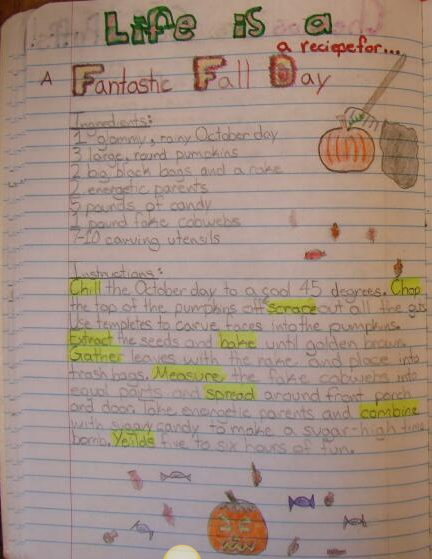 Life is a
a reciepe for...
A Fantastic Fall Day
Ingredients:
1 glommy, rainy October day
3 large, round pumpkins
2 big black bags and a rake
2 energetic parents
5 pounds of candy
1 pound fake cobwebs
7-10 carving utensils
Instructions:
Chill the October day to a cool 45 degrees. Chop
the top of the pumpkins off scrape out all the guts
Use templetes to carve faces into the pumpkins.
Extract the seeds and bake until golden brown.
Gather leaves with the rake and place into
trash bags. Measure the fake cobwebs into
equal parts and spread around front porch
and door. Take energetic parents and combine
with sugary candy to make a sugar-high time
bomb. Yeilds five to six hours of fun.